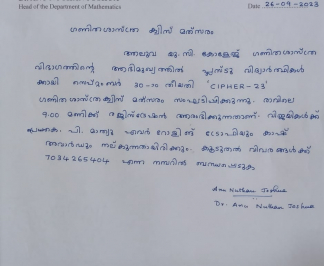 Head of the Department of Mathematics
Date 26-09-2023
ഗണിതശാസ്ത്ര ക്വിസ് മത്സരം
ആലുവ യു.സി. കോളേജ് ഗണിതശാസ്ത്ര
വിഭാഗത്തിന്റെ ആഭിമുഖ്യത്തിൽ പ്ലസ്ടു വിദ്യാർത്ഥികൾ
ക്കായി സെപ്റ്റംബർ 30-ാം തിയതി 'CIPHER-23'
ഗണിതശാസ്ത്രക്വിസ് മത്സരം സംഘടിപ്പിക്കുന്നു. രാവിലെ
9.00 മണിക്ക് രജിസ്ട്രേഷൻ ആരംഭിക്കുന്നതാണ്. വിജയികൾക്ക്
പി. മാത്യു എവർ റോളിങ് ട്രോഫിയും ക്യാഷ്
അവാർഡും നല്കുന്നതായിരിക്കും. കൂടുതൽ വിവരങ്ങൾക്ക്
7034265404 എന്ന നമ്പറിൽ ബന്ധപ്പെടുക
Anu Nuthan Joshua
Dr. Anu Nuthan Joshua